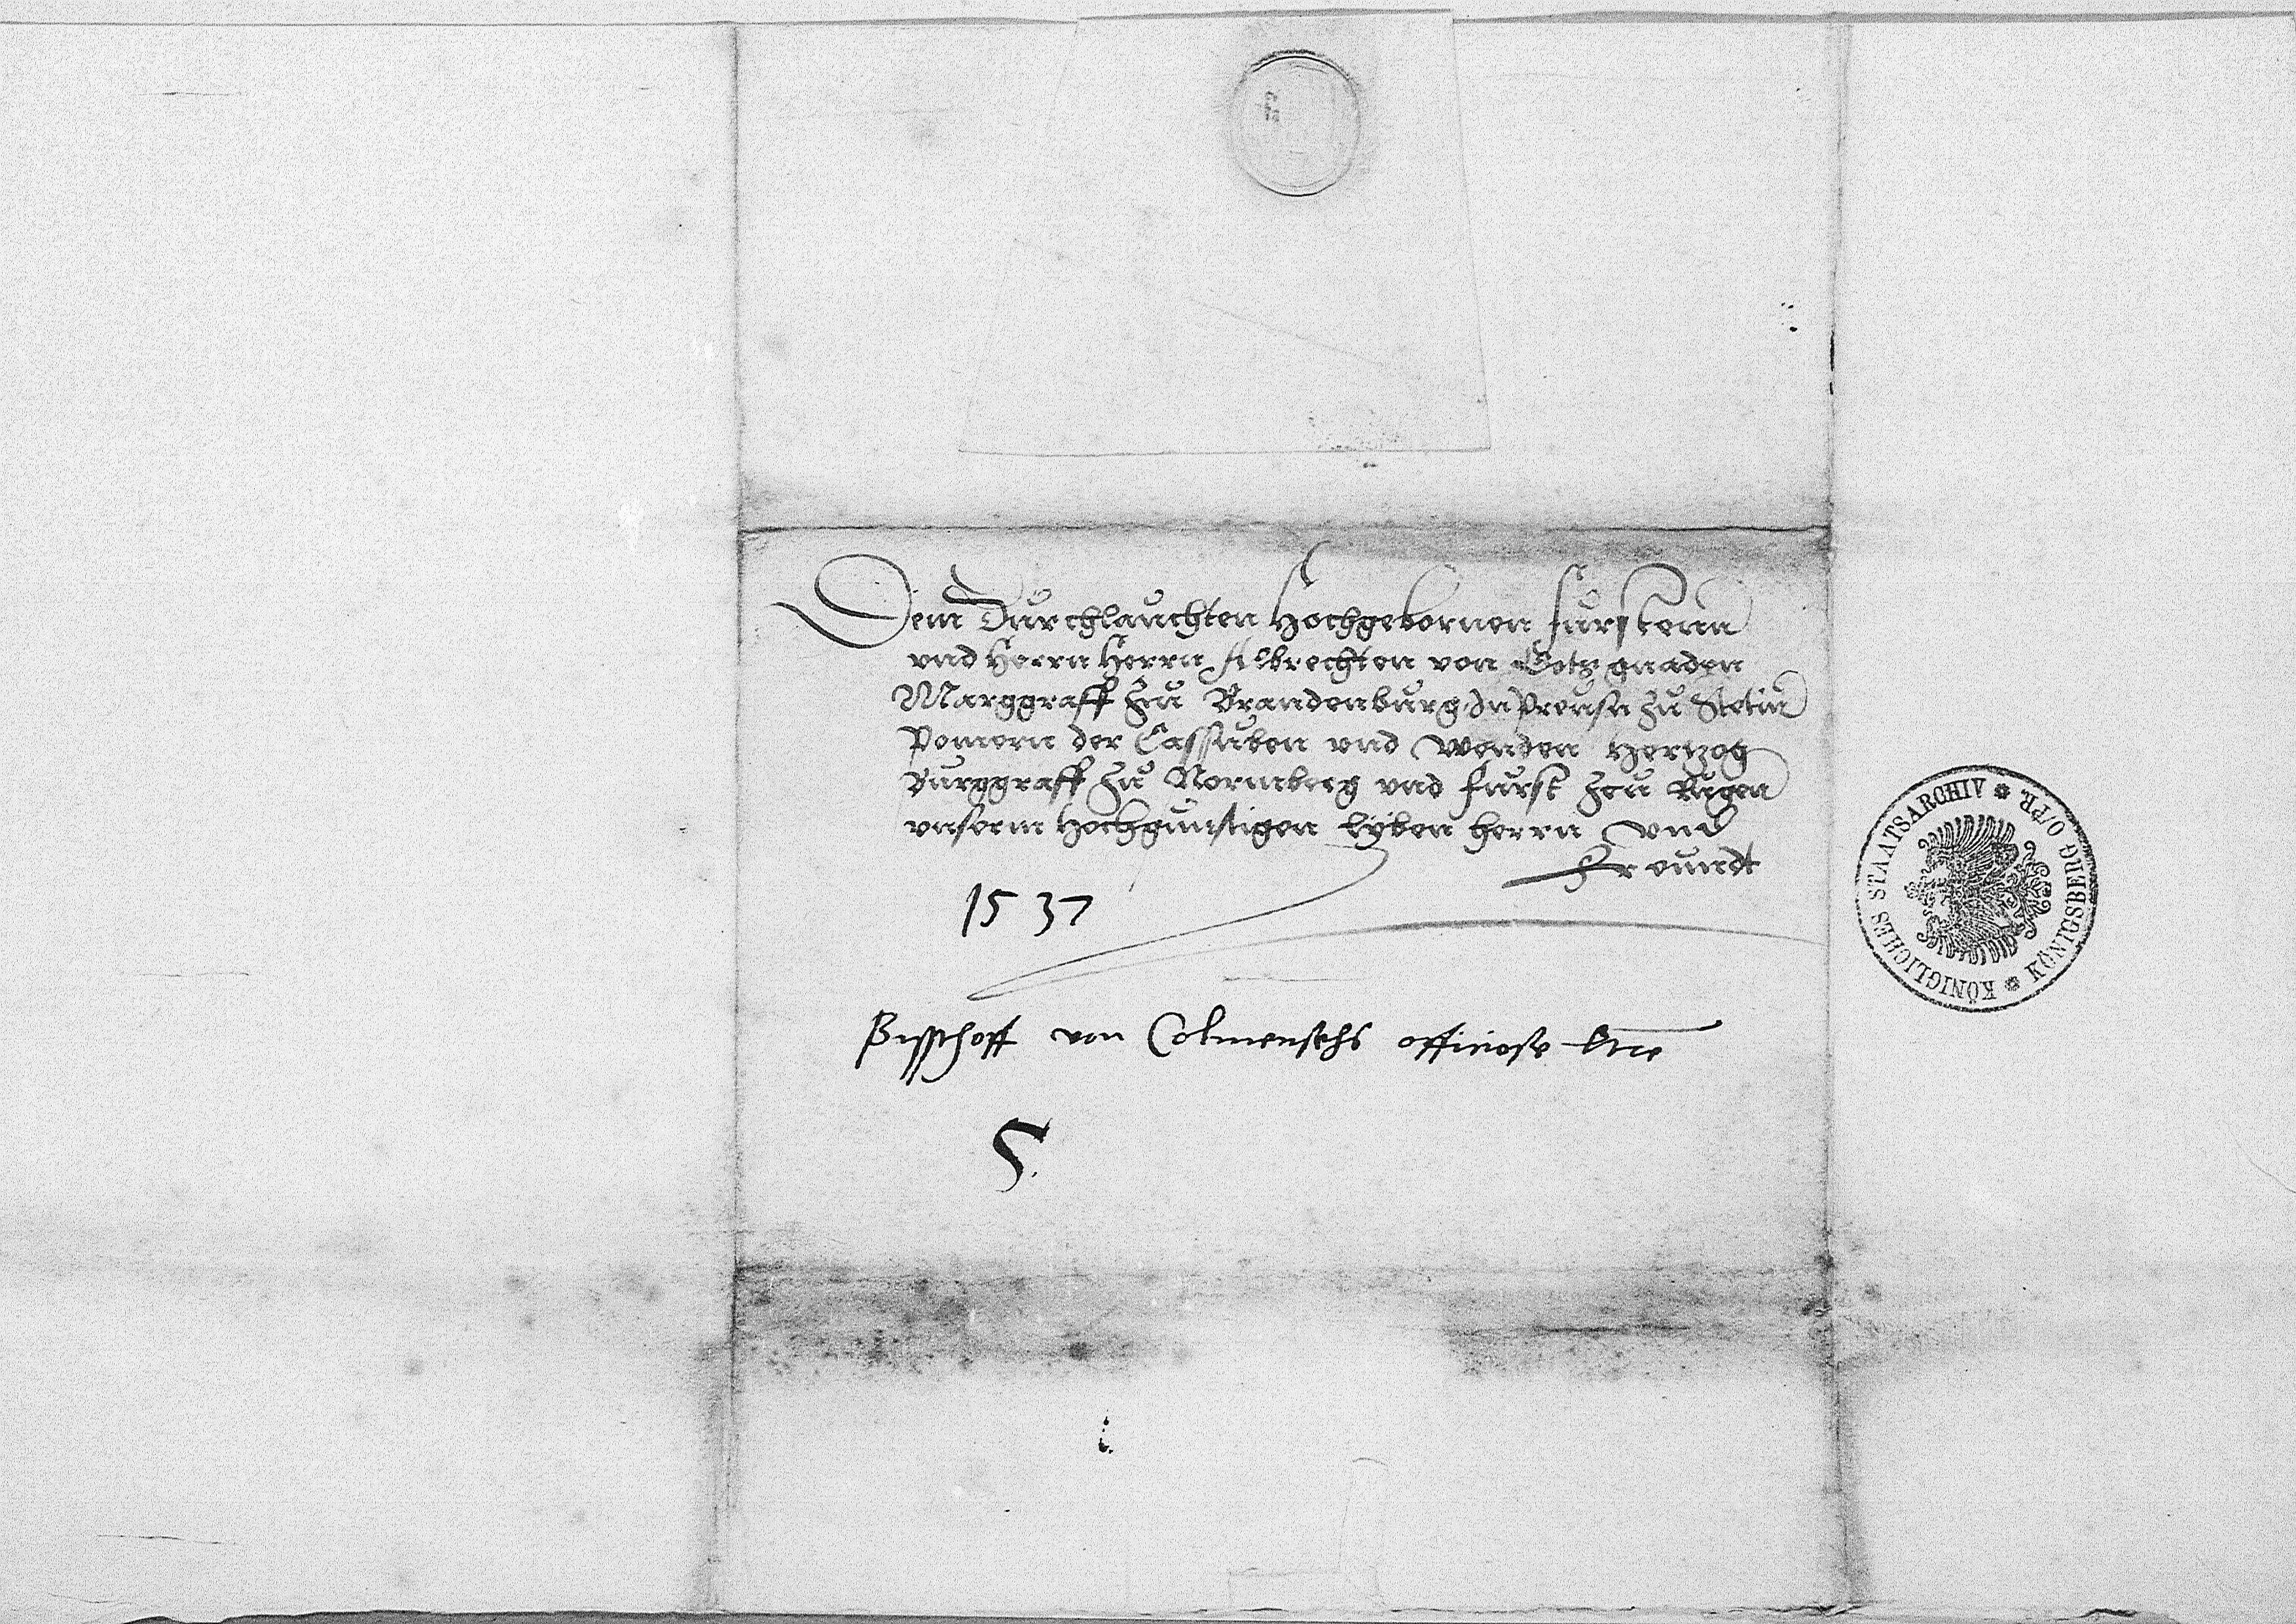 Dem Durchlauchten Hochgebornen fursten
vnd Herrn Herrn Albrechten von Gots gnaden
Marggraff zu Brandenburg In Preusn zu Stetin
Pomern der Cassuben vnd Wenden Hertzog
Burggraff zu Normberg vnd furst zcu Rugen
vnserm Hochgunstigen lyben herrn vnd
Freundt
1537
Bisschoff von Colmensehs officiose
KÖNIGLICHES STAATSARCHIV * KÖNIGSBERG O/PR. *